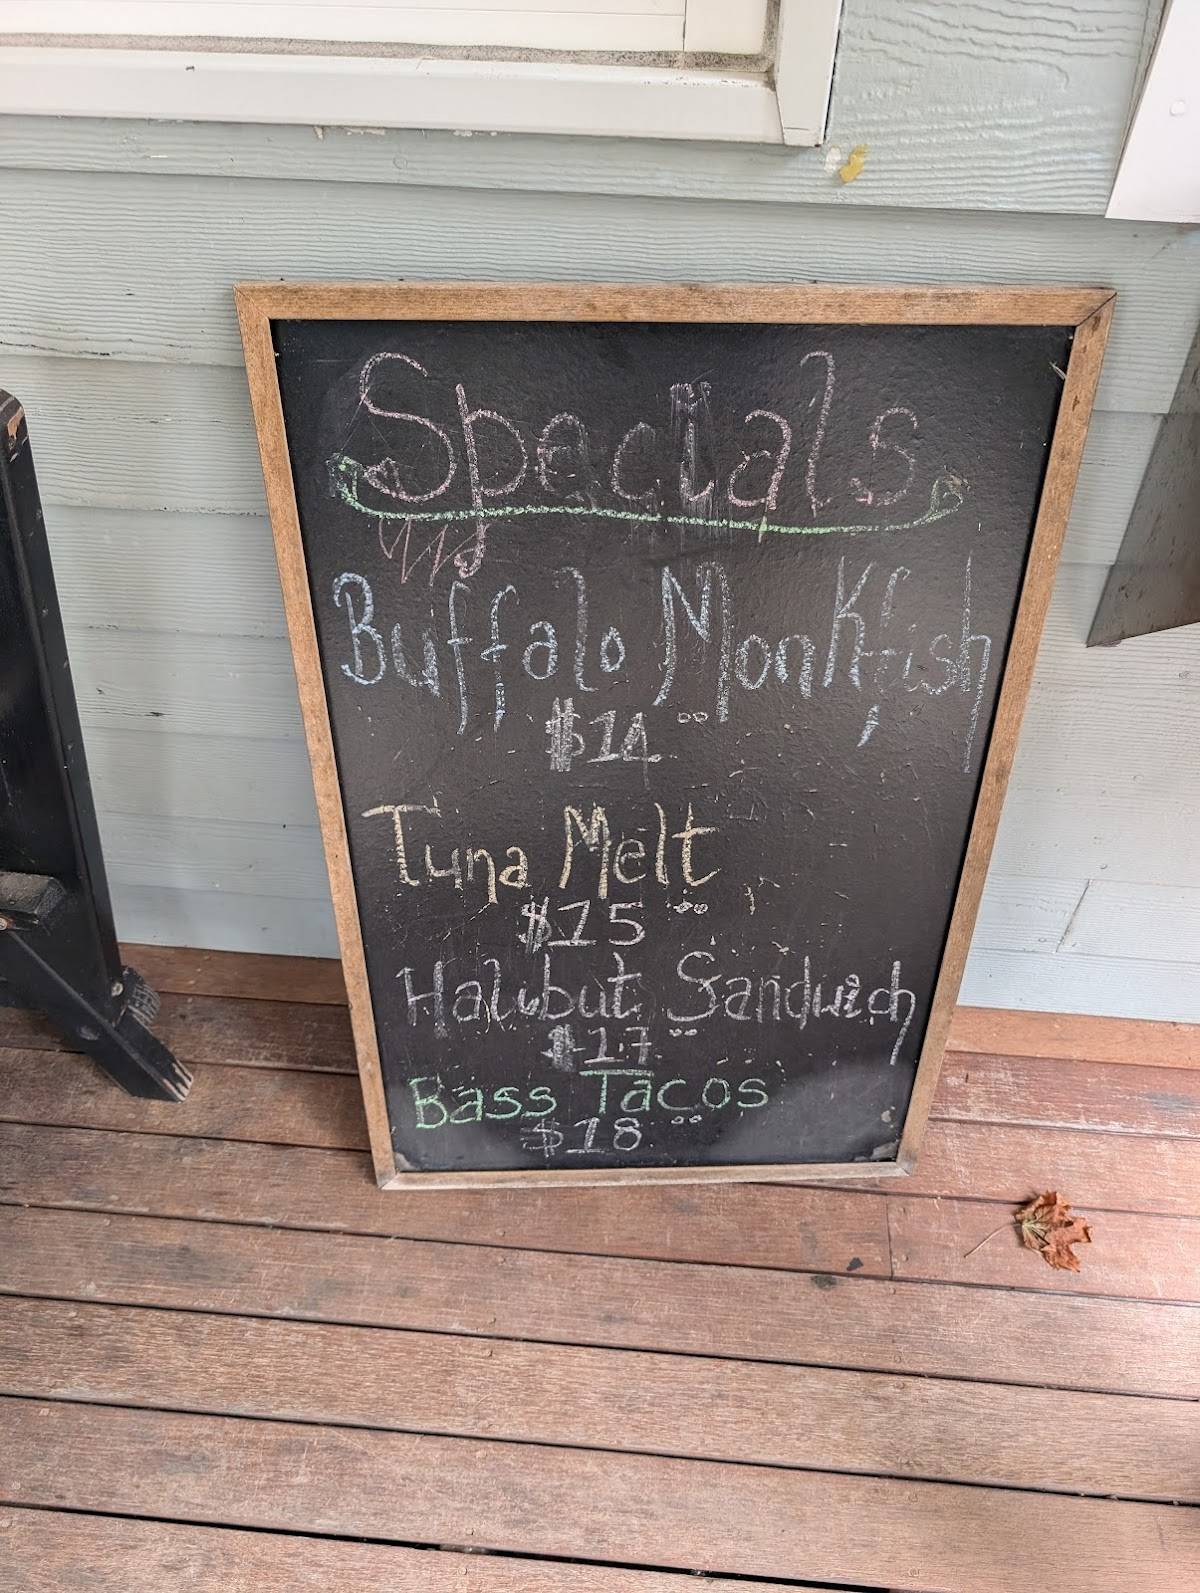 Specials
Buffalo Monkfish
$14.00
Tuna Melt
$15.00
Halibut Sandwich
$17.00
Bass Tacos
$18.00